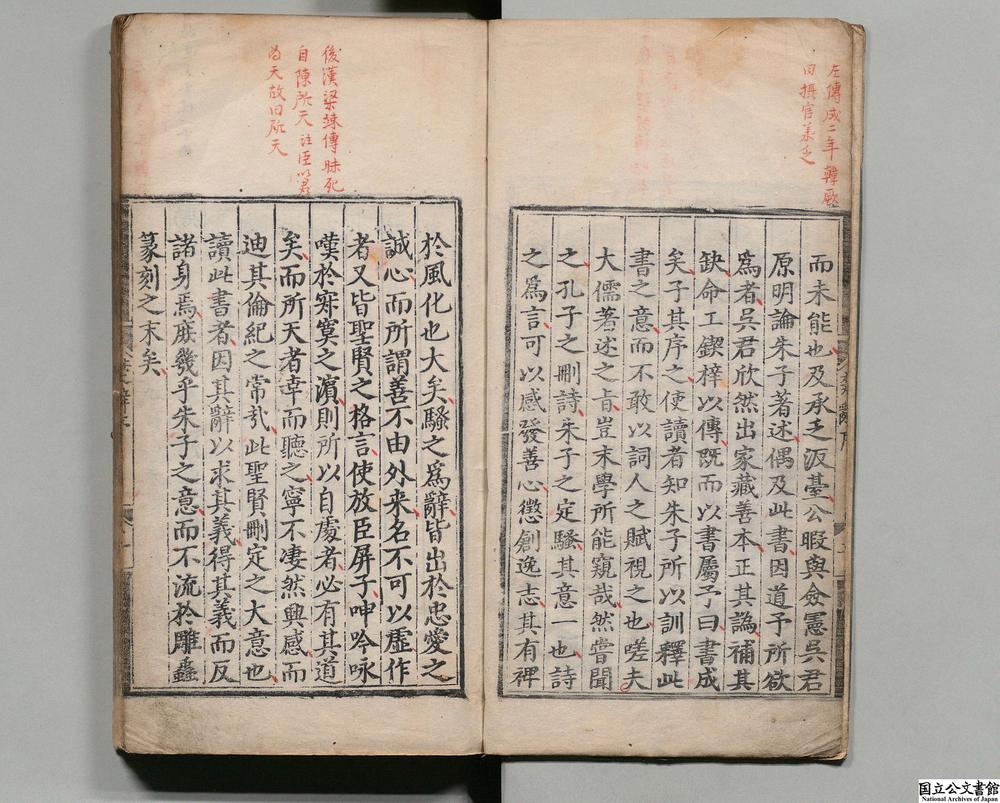 左傳成二年韓厥
曰攝官承乏
而未能也及承乏汳臺公暇與僉憲吳君
原明論朱子著述偶及此書因道予所欲
爲者吳君欣然出家藏善本正其譌補其
缺命工鍥梓以傳既而以書屬予曰書成
矣子其序之使讀者知朱子所以訓釋此
書之意而不敢以詞人之賦視之也嗟夫
大儒著述之旨豈末學所能窺哉然嘗聞
之孔子之刪詩朱子之定騷其意一也詩
之爲言可以感發善心懲創逸志其有裨
後漢梁竦傳昧死
自陳所天注臣以君
爲天故曰所天
於風化也大矣騷之爲辭皆出於忠愛之
誠心而所謂善不由外来名不可以虛作
者又皆聖賢之格言使放臣屏子呻吟咏
嘆於寂寞之濵則所以自處者必有其道
矣而所天者幸而聽之寧不凄然興感而
迪其倫紀之常哉此聖賢刪定之大意也
讀此書者因其辭以求其義得其義而反
諸身焉庶幾乎朱子之意而不流於雕蟲
篆刻之末矣
国立公文書館
National Archives of Japan